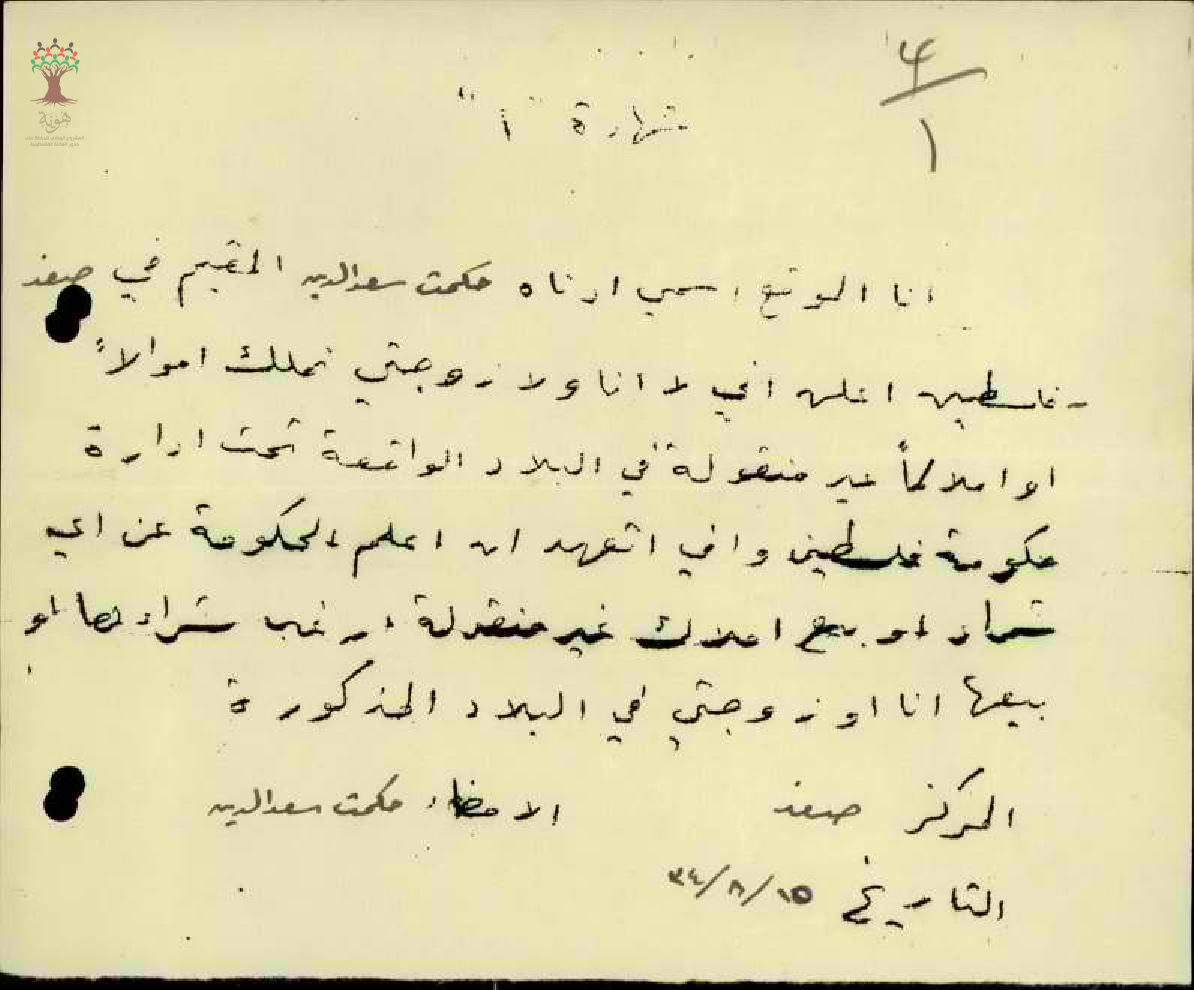 ٤
١
شهادة "أ"
انا الموقع اسمي ادناه حكمت سعد الدين المقيم في صفد
فلسطين اعلن اني لا انا ولا زوجتي نملك اموالاً
او املاكاً غير منقولة في البلاد الواقعة تحت ادارة
حكومة فلسطين واني اتعهد ان اعلم الحكومة عن اي
شراء او بيع املاك غير منقولة ارغب شراءها او
بيعها انا او زوجتي في البلاد المذكورة
المركز صفد الامضاء حكمت سعد الدين
التاريخ ١٥/٨/٣٤
هوية